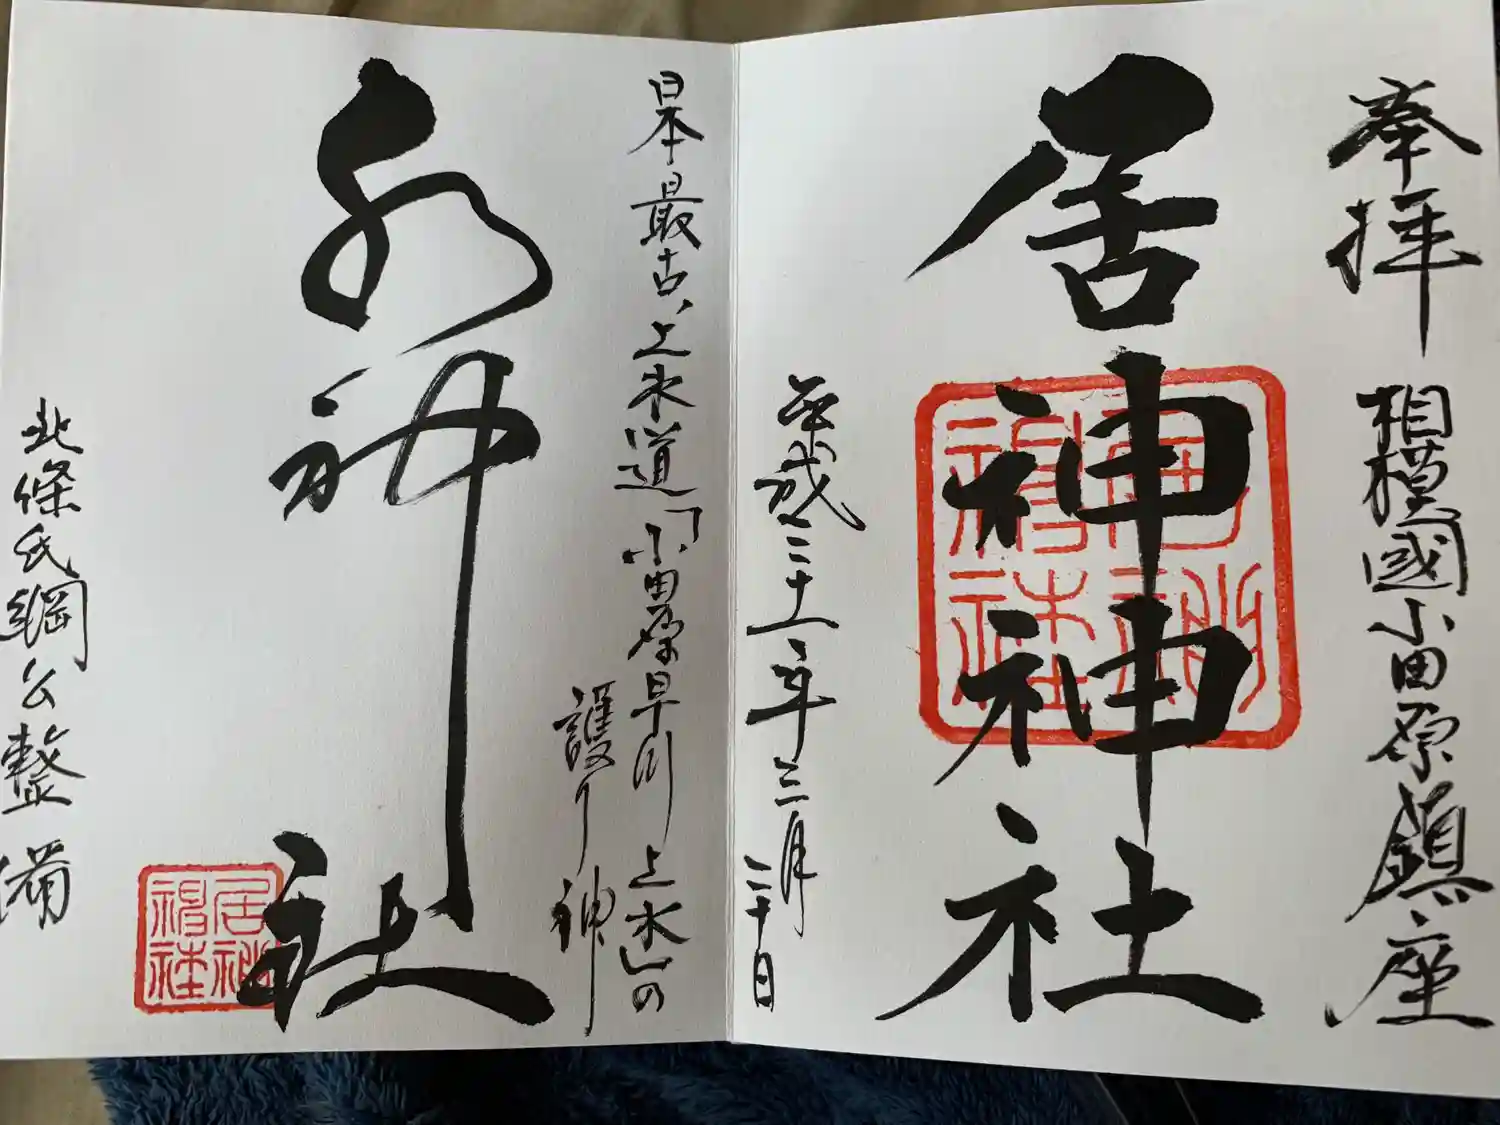 奉拝
相模國小田原鎮座
居神神社
居神神社
平成三十一年三月
二十日
日本最古、上水道「小田原早川上水」の
護り神
水神社
居神神社
北條氏綱公整備